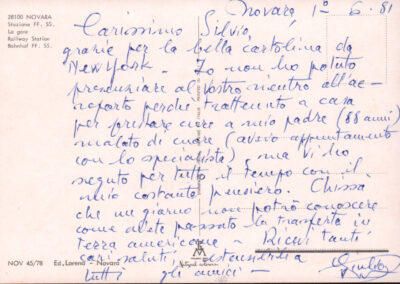 28100 NOVARA
Stazione FF. SS.
La gare
Railway Station
Bahnhof FF. SS.
Novara 1° 6. 81
Carissimo Silvio,
grazie per la bella cartolina da
New York - Io non ho potuto
presenziare al vostro rientro all'ae-
roporto perché trattenuto a casa
per prestare cure a mio padre (88 anni)
malato di cuore (avevo appuntamento
con lo specialista), ma vi ho
seguito per tutto il tempo con il
mio costante pensiero. Chissà
che un giorno non potrò conoscere
come avete passato la trasferta in
terra americana - Ricevi tanti
cari saluti, estensibili a
tutti gli amici -
NOV 45/78 Ed. Lorena - Novara